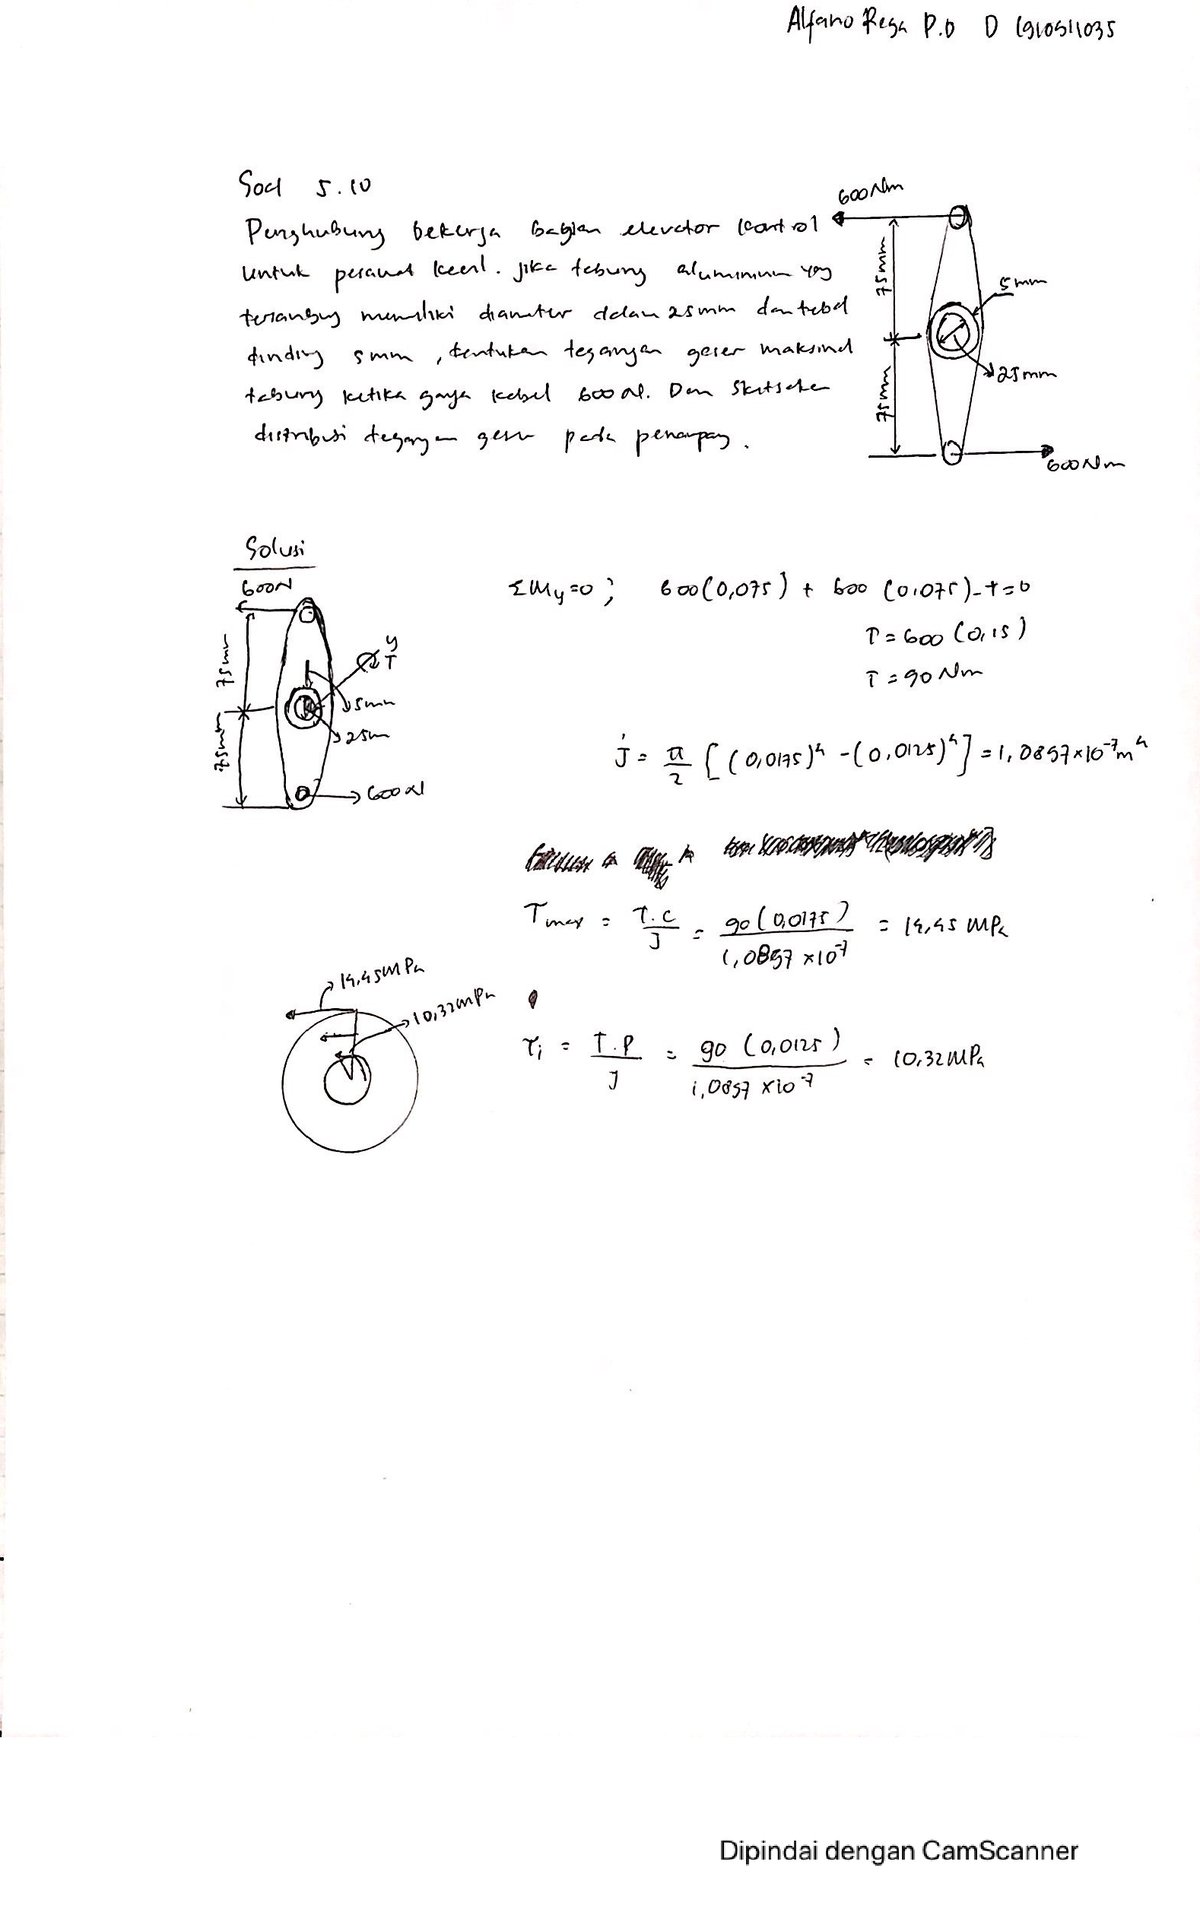 Alfano Rega P.D D 1910511035
Soal 5.10
Penghubung bekerja bagian elevator kontrol
untuk pesawat kecil. jika tabung aluminium yg
tersambung memiliki diameter dalam 25mm dan tebal
dinding 5mm, tentukan tegangan geser maksimal
tabung ketika gaya kabel 600N. Dan sketsakan
distribusi tegangan geser pada penampang.
600Nm
75mm
5mm
25mm
75mm
600Nm
Solusi
600N
75mm
y
T
5mm
25m
75mm
600N
ΣMy=0; 600(0,075) + 600 (0,075)-T=0
T = 600 (0,15)
T = 90 Nm
J = π/2 [(0,0175)⁴ - (0,0125)⁴] = 1,0857×10⁻⁷m⁴
Tmax = T.C/J = 90(0,0175)/1,0857×10⁻⁷ = 14,45 MPa
14,45MPa
10,32MPa
τi = T.P/J = 90 (0,0125)/1,0857×10⁻⁷ = 10,32MPa
Dipindai dengan CamScanner